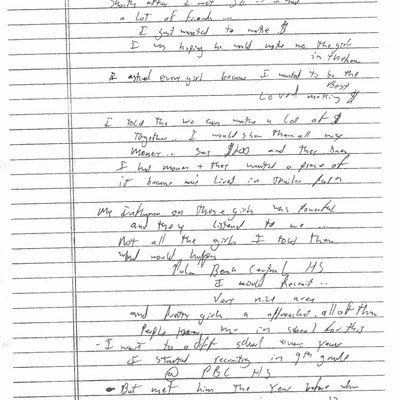 Shortly after I met
a LOT of friends...
I just wanted to make $
I was hoping he would make me the girl
in the
I asked every girl because I wanted to be the
Best
Loved making $
I told them we can make a LOT of $
Together.. I would show them all my
Money... $ and they knew
I had money & they wanted a piece of
it because lived in Trailer Parks
My Influence on those girls was powerful
and they listened to me ...
Not all the girls I told them
what would happen
Palm Beach Central HS
I would Recruit ..
Very nice area
and Pretty girls all of them
People knew me in school for this
- I went to a diff school every year
I started recruiting in 9th grade
@ PBC HS
• But met him the year before when